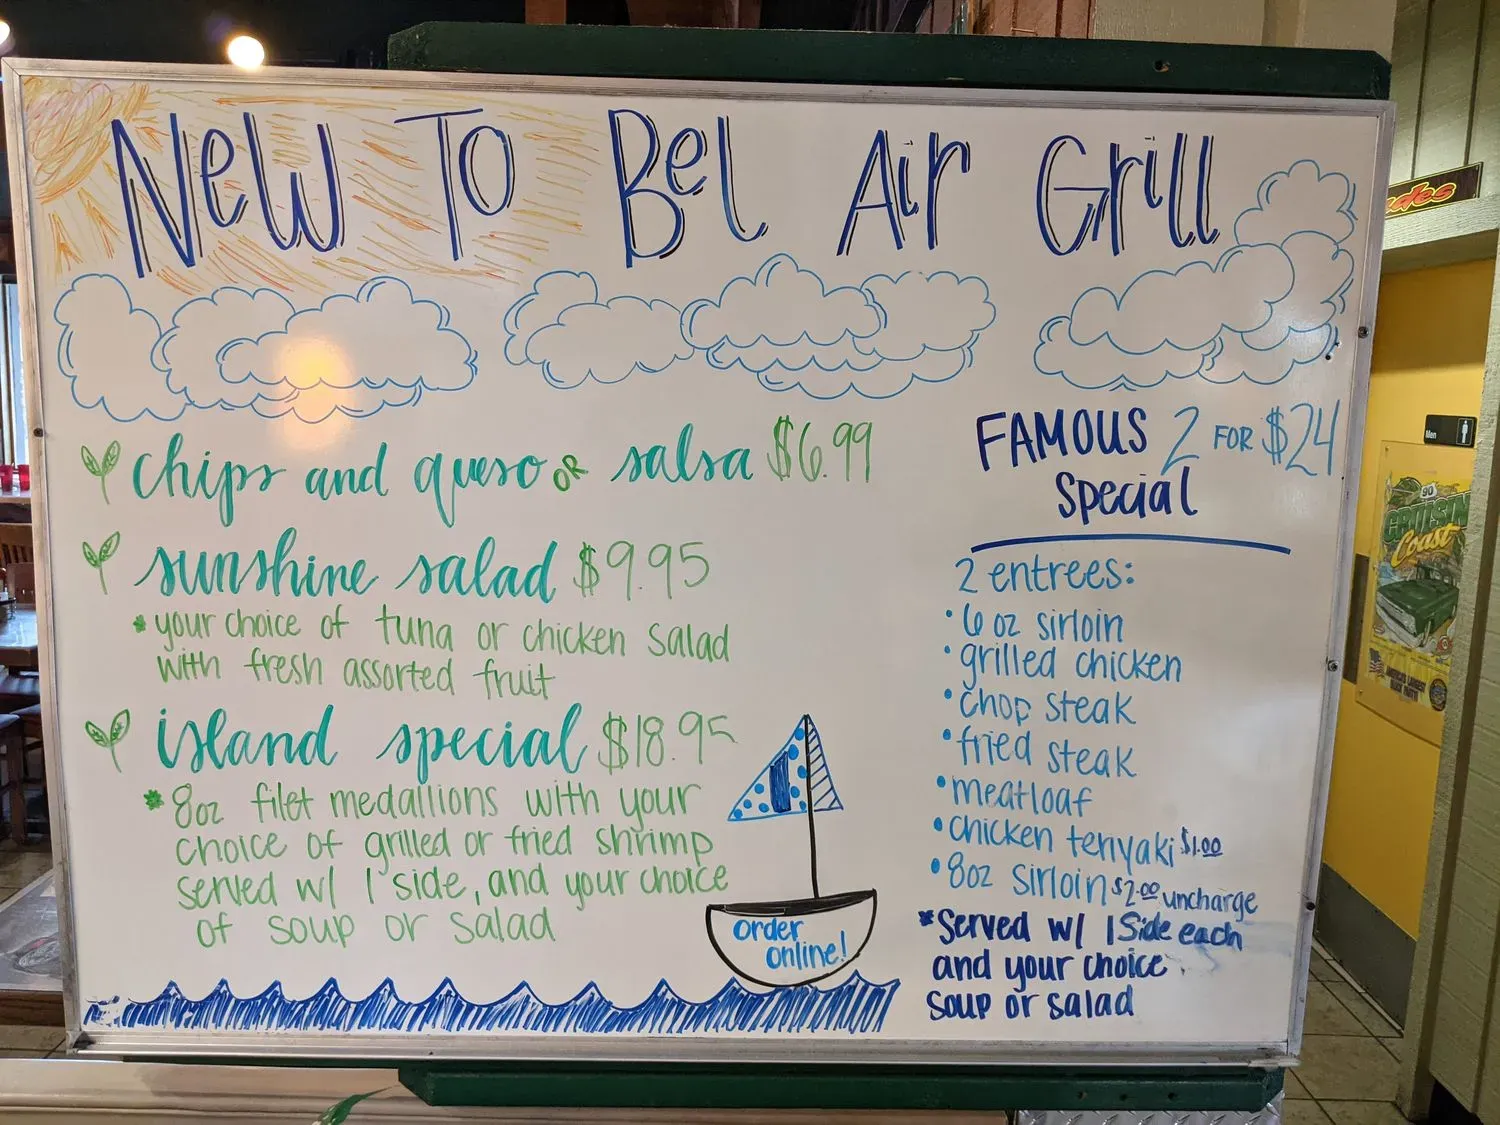 New To Bel Air Grill
chips and queso OR salsa $6.99
sunshine salad $9.95
your choice of tuna or chicken salad
with fresh assorted fruit
island special $18.95
8oz filet medallions with your
choice of grilled or fried shrimp
served w/ 1 side, and your choice
of soup or salad
order
online!
FAMOUS 2 FOR $24
Special
2 entrees:
• 6 oz sirloin
• grilled chicken
• chop steak
• fried steak
• meatloaf
• chicken teriyaki $1.00
• 8oz sirloin $2.00 uncharge
*Served w/ 1 Side each
and your choice
soup or salad
Men
CRUISIN
Coast